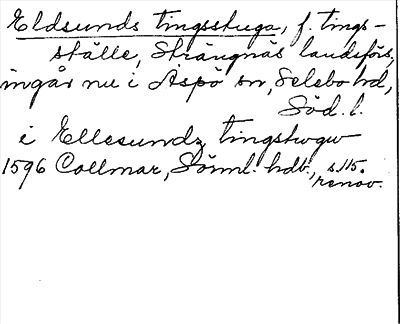 Eldsunds tingsstuga, f. tings-
ställe, Strängnäs landsförs,
ingår nu i Aspö sn, Selebo hd,
Söd. l.
i Ellesundz tingstwgw
1596 Collmar, Sörml. hdb., s. 115.
renov.